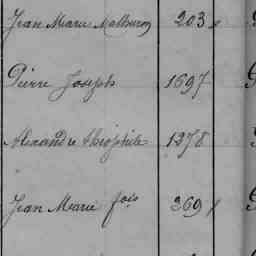 Jean Marie Mathurin 203
Pierre Joseph 1697
Alexandre théophile 1378
Jean Marie fois 369